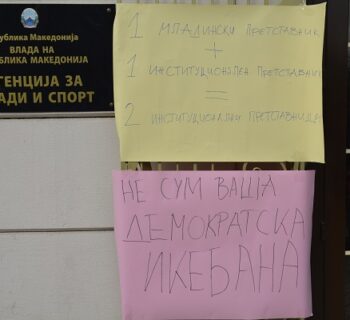 публика Македонија
ВЛАДА НА
ПУБЛИКА МАКЕДОНИЈА
ГЕНЦИЈА ЗА
АДИ И СПОРТ
1 МЛАДИНСКИ ПРЕТСТАВНИК
+
1 ИНСТИТУЦИОНАЛЕН ПРЕТСТАВНИК
=
2 ИНСТИТУЦИОНАЛНИ ПРЕТСТАВНИЦИ
НЕ СУМ ВАША
ДЕМОКРАТСКА
ИКЕБАНА